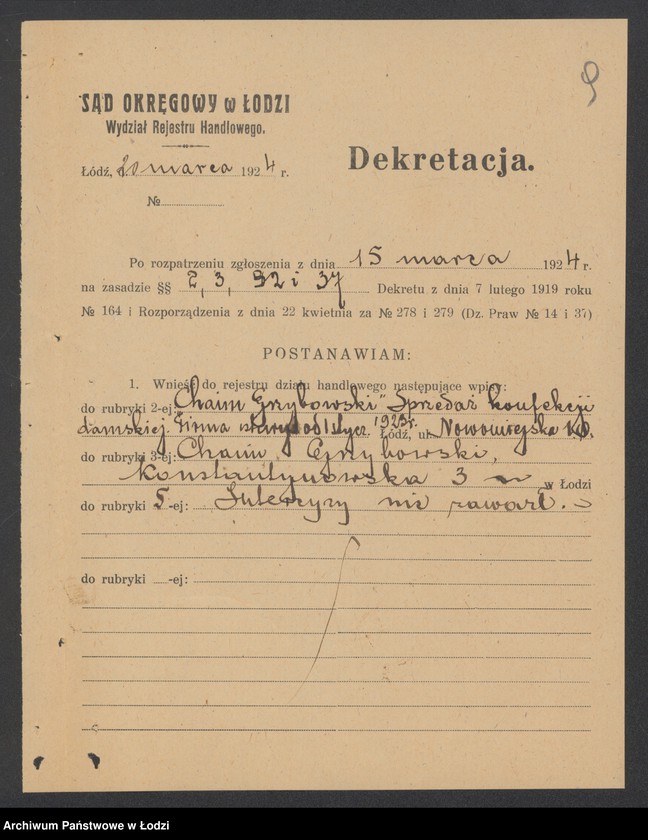 9
SĄD OKRĘGOWY w ŁODZI
Wydział Rejestru Handlowego.
Dekretacja.
Łódź, d. 20 marca 1924 r.
№
Po rozpatrzeniu zgłoszenia z dnia 15 marca 1924 r.
na zasadzie §§ 2, 3, 32 i 37 Dekretu z dnia 7 lutego 1919 roku
№ 164 i Rozporządzenia z dnia 22 kwietnia za № 278 i 279 (Dz. Praw № 14 i 37)
POSTANAWIAM:
1. Wnieść do rejestru działu handlowego następujące wpisy:
do rubryki 2-ej: „Chaim Grzybowski" Sprzedaż konfekcji
damskiej. Firma od 1 stycz. 1923 r. Łódź, ul. Nowomiejska
do rubryki 3-ej: Chaim Grzybowski,
Konstantynowska 3 w Łodzi
do rubryki 5-ej: Intercyzy nie zawarł.
do rubryki -ej:
Archiwum Państwowe w Łodzi